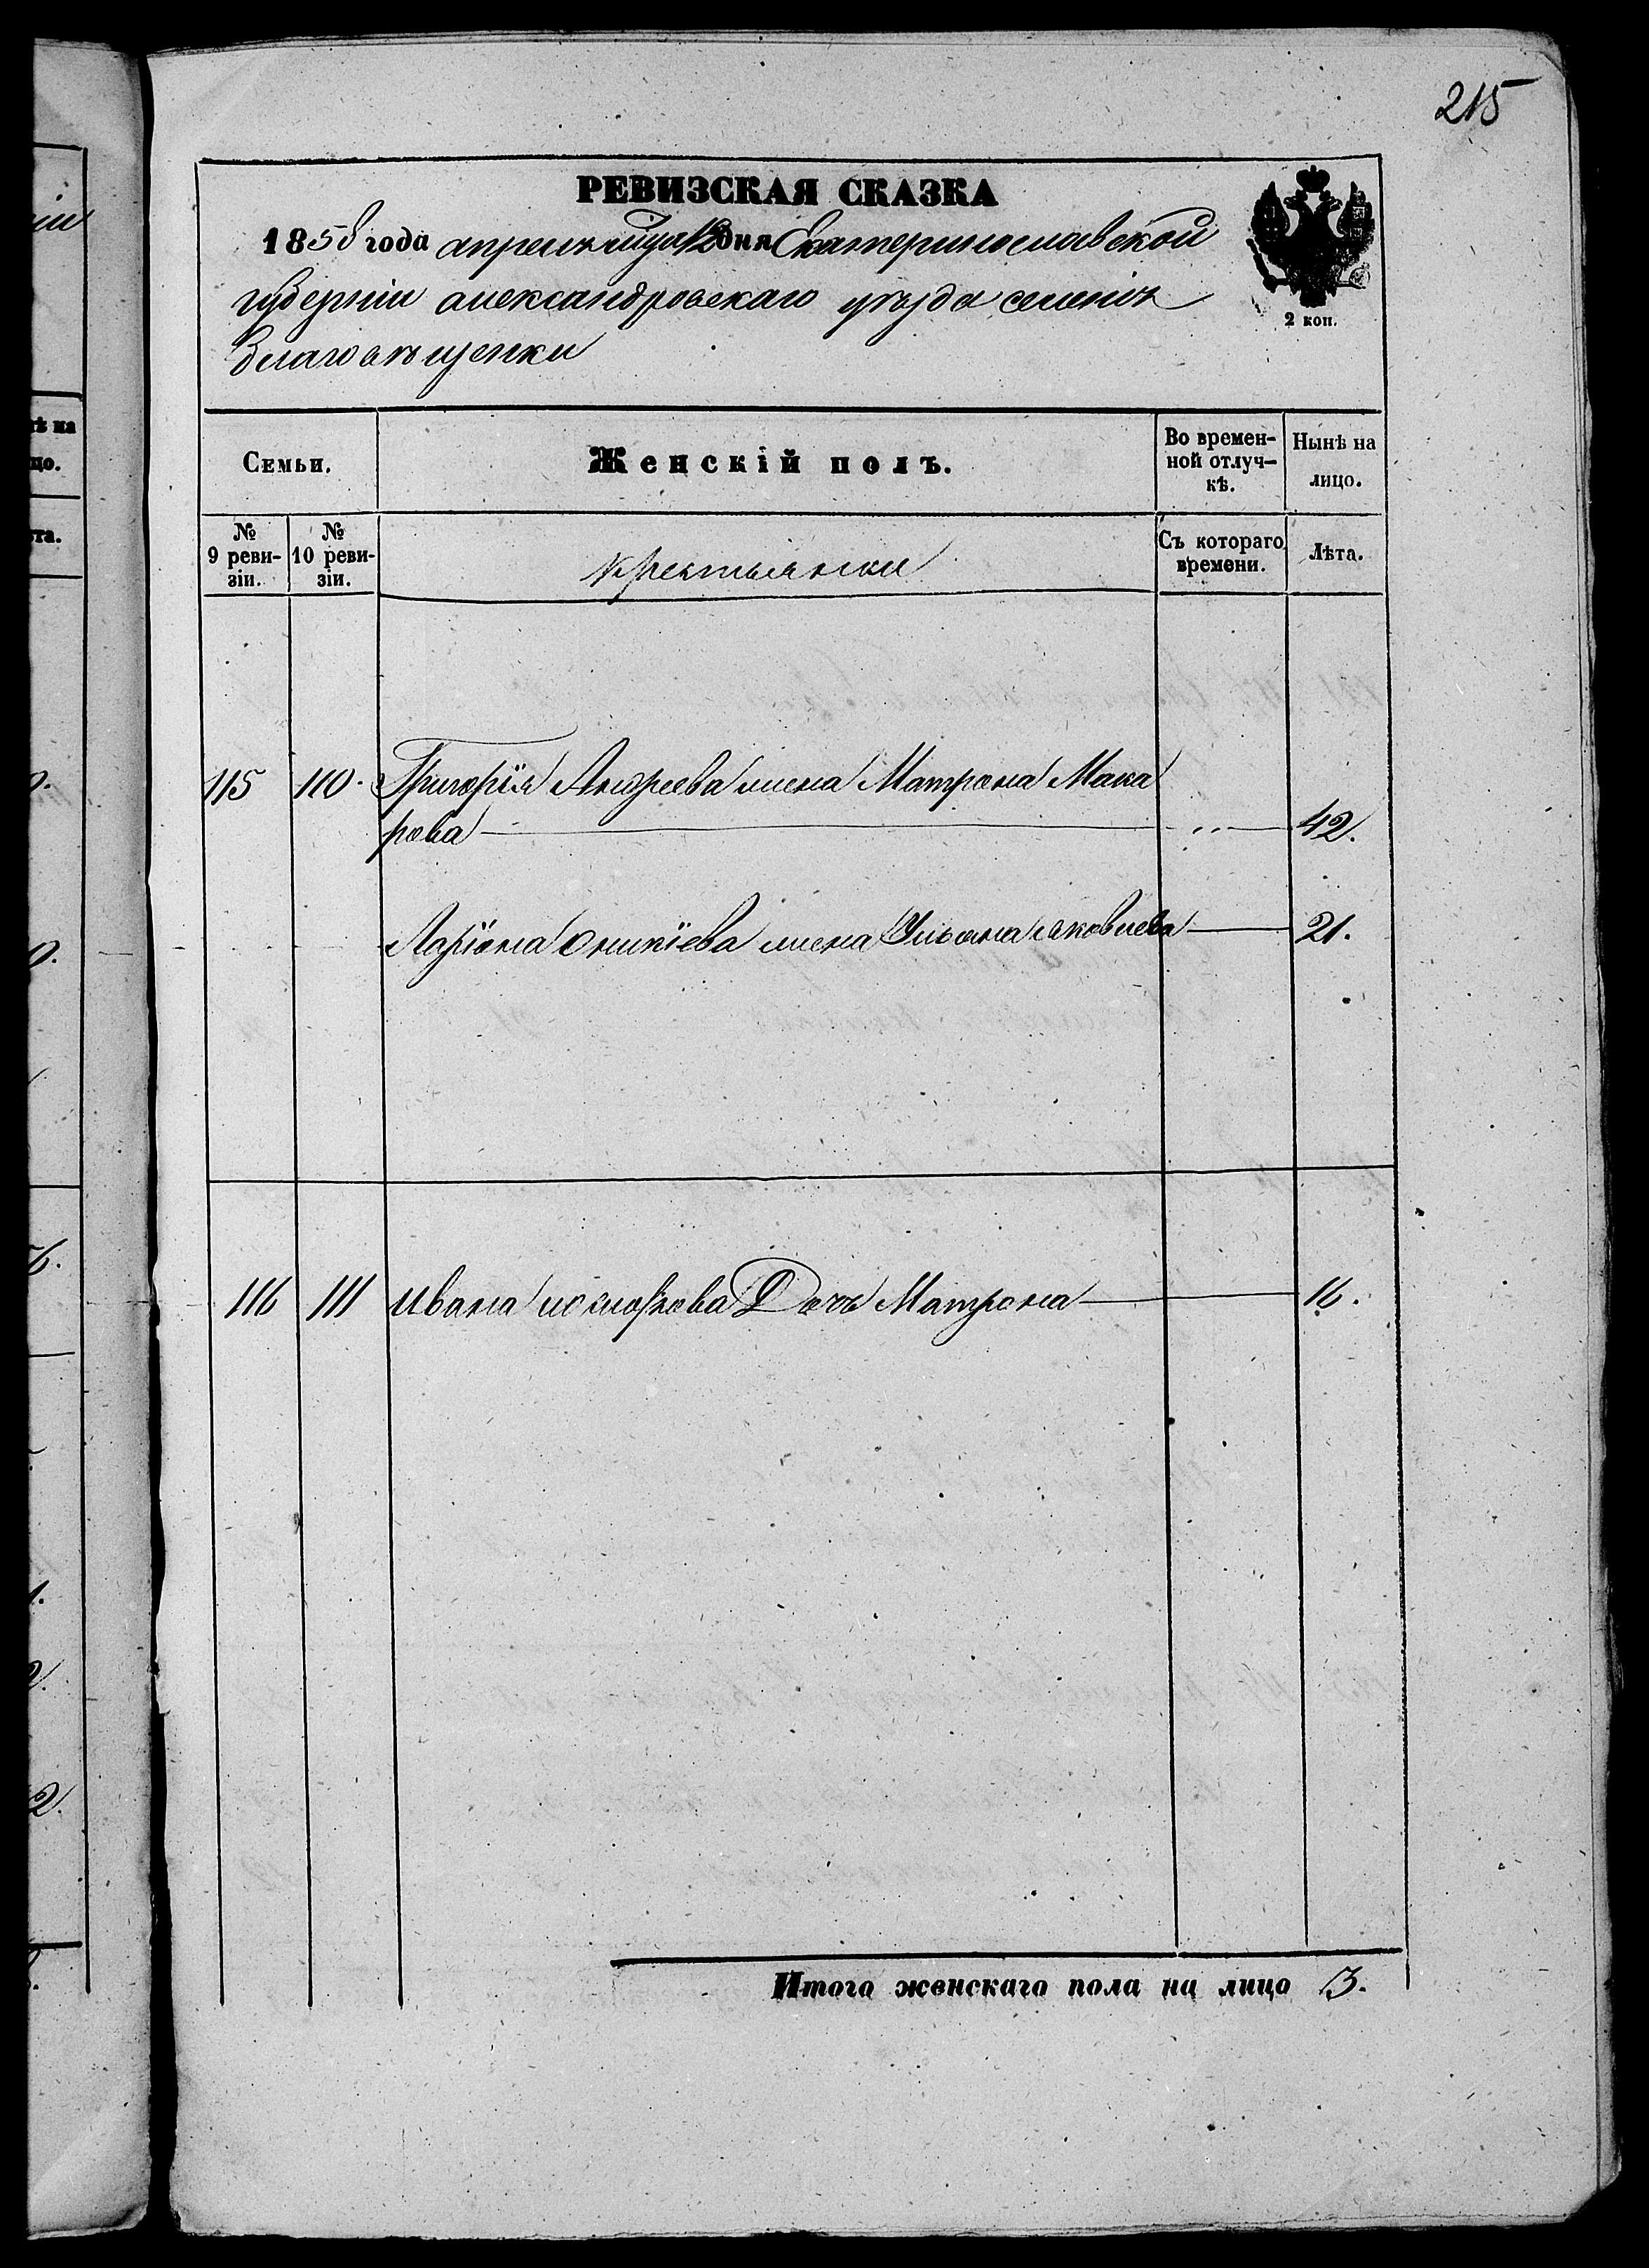 215
РЕВИЗСКАЯ СКАЗКА
1858 года апреля мца 12 дня Екатеринославской
губерніи александровскаго уѣзда селенія
Благовѣщенки
2 коп.
Семьи. Женскій полъ. Во времен-ной отлуч-кѣ. Нынѣ на лицо.
№ 9 реви-зіи. № 10 реви-зіи. крестьянки Съ котораго времени. Лѣта.
115 110. Григорія Андреева жена Матрона Мака
рова 42.
Ларіона Оникіева жена Ульяна яковлева 21.
116 111 Ивана Дочь Матрона 16.
Итого женскаго пола на лицо 3.